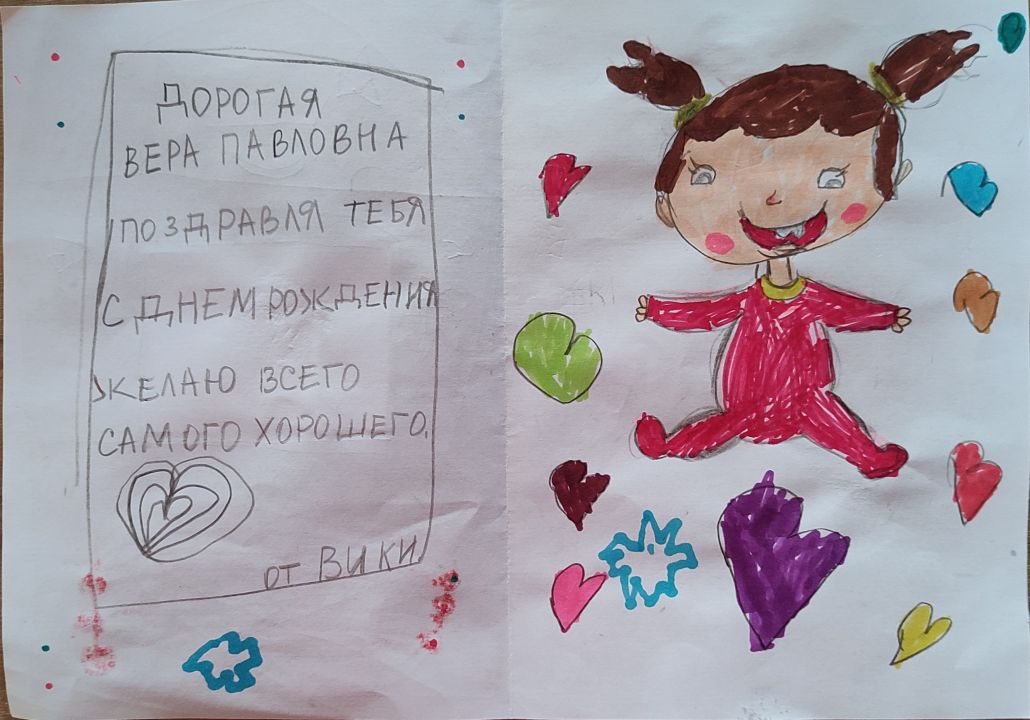 ДОРОГАЯ
ВЕРА ПАВЛОВНА
ПОЗДРАВЛЯ ТЕБЯ
С ДНЕМ РОЖДЕНИЯ
ЖЕЛАЮ ВСЕГО
САМОГО ХОРОШЕГО.
от ВИКИ